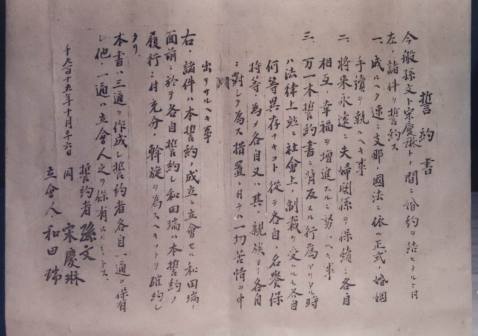 誓約書
今般孫文ト宋慶琳トノ間ニ婚約ヲ結ヒタルニ付
左ノ諸件ヲ誓約ス
一、成ルヘク速ニ支那ノ國法ニ依ル正式ノ婚姻
手續ヲ執ルヘキ事
二、將来永遠ニ夫婦関係ヲ保續シ各自
相互ノ幸福ヲ増進スルニ努ムヘキ事
三、万一本誓約書ニ背反スル行為アリタル時
ハ法律上並ニ社會上ノ制裁ヲ受クルモ各自
何等異存ナキコト従テ各自ノ名譽保
持等ノ為メ各自又ハ其ノ親族ヨリ各自
ニ對シテ為ス措置ニ付テハ一切苦情ヲ申
出サルヘキ事
右ノ諸件ハ本誓約ノ成立ニ立會セル和田瑞ノ
面前ニ於テ各自誓約シ和田瑞ハ本誓約ノ
履行ニ付充分ノ斡旋ヲ為スヘキコトヲ確約シ
タリ
本書ハ三通ヲ作成シ誓約者各自一通ヲ保有
シ他ノ一通ハ立會人之ヲ保有スルモノトス
千九百十五年十月廿六日
誓約者 孫文
同 宋慶琳
立會人 和田瑞